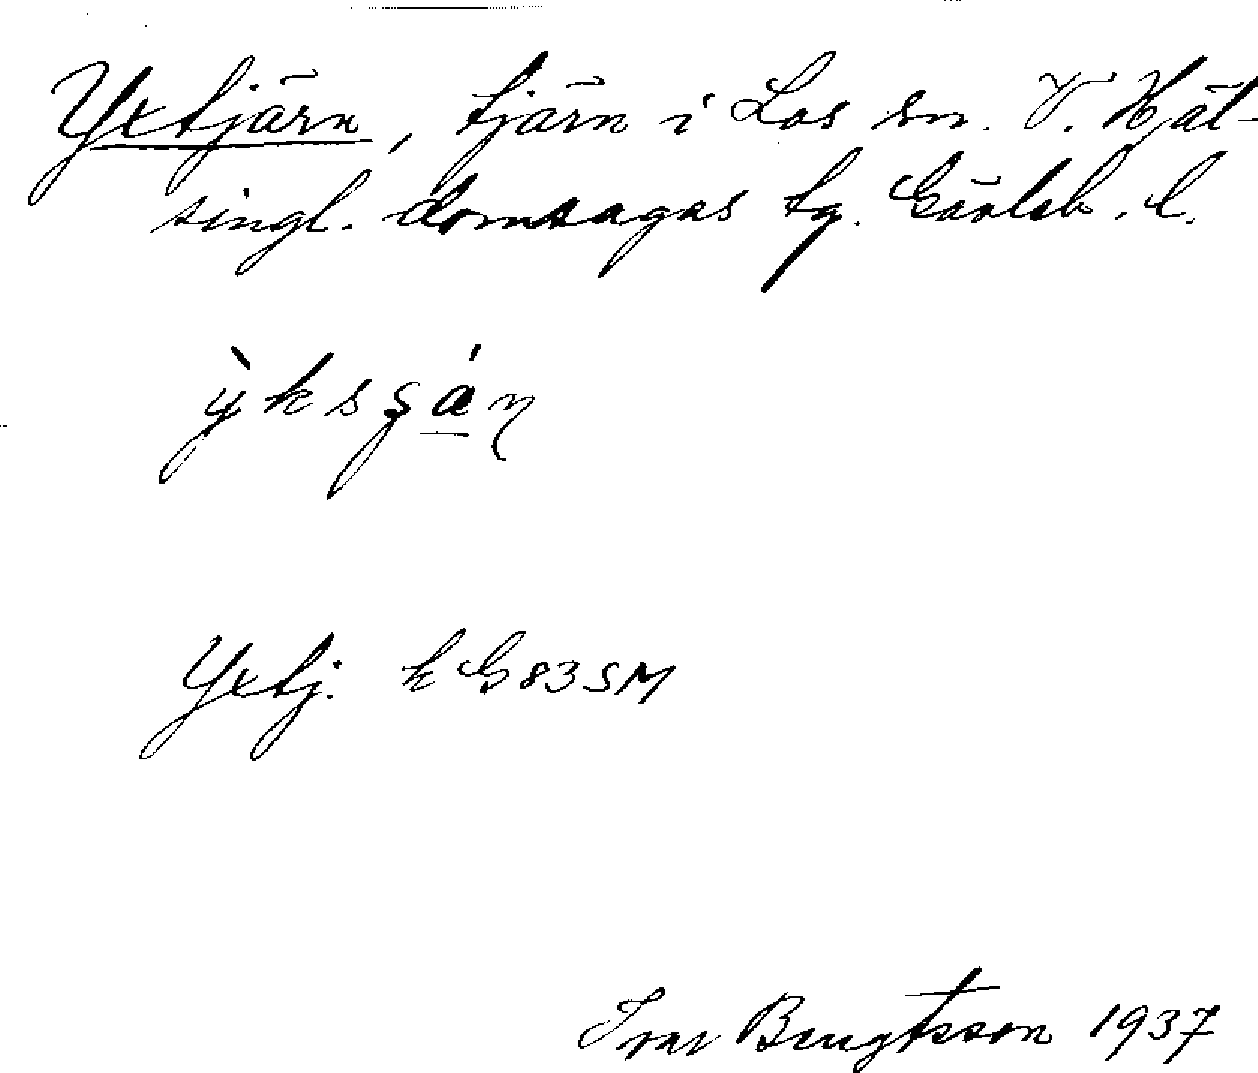 Yxtjärn, tjärn i Los sn. V. Häl-
singl. domsagas tg. Gävleb. l.
Yxtj. k G 83 SM
Ivar Bengtsson 1937